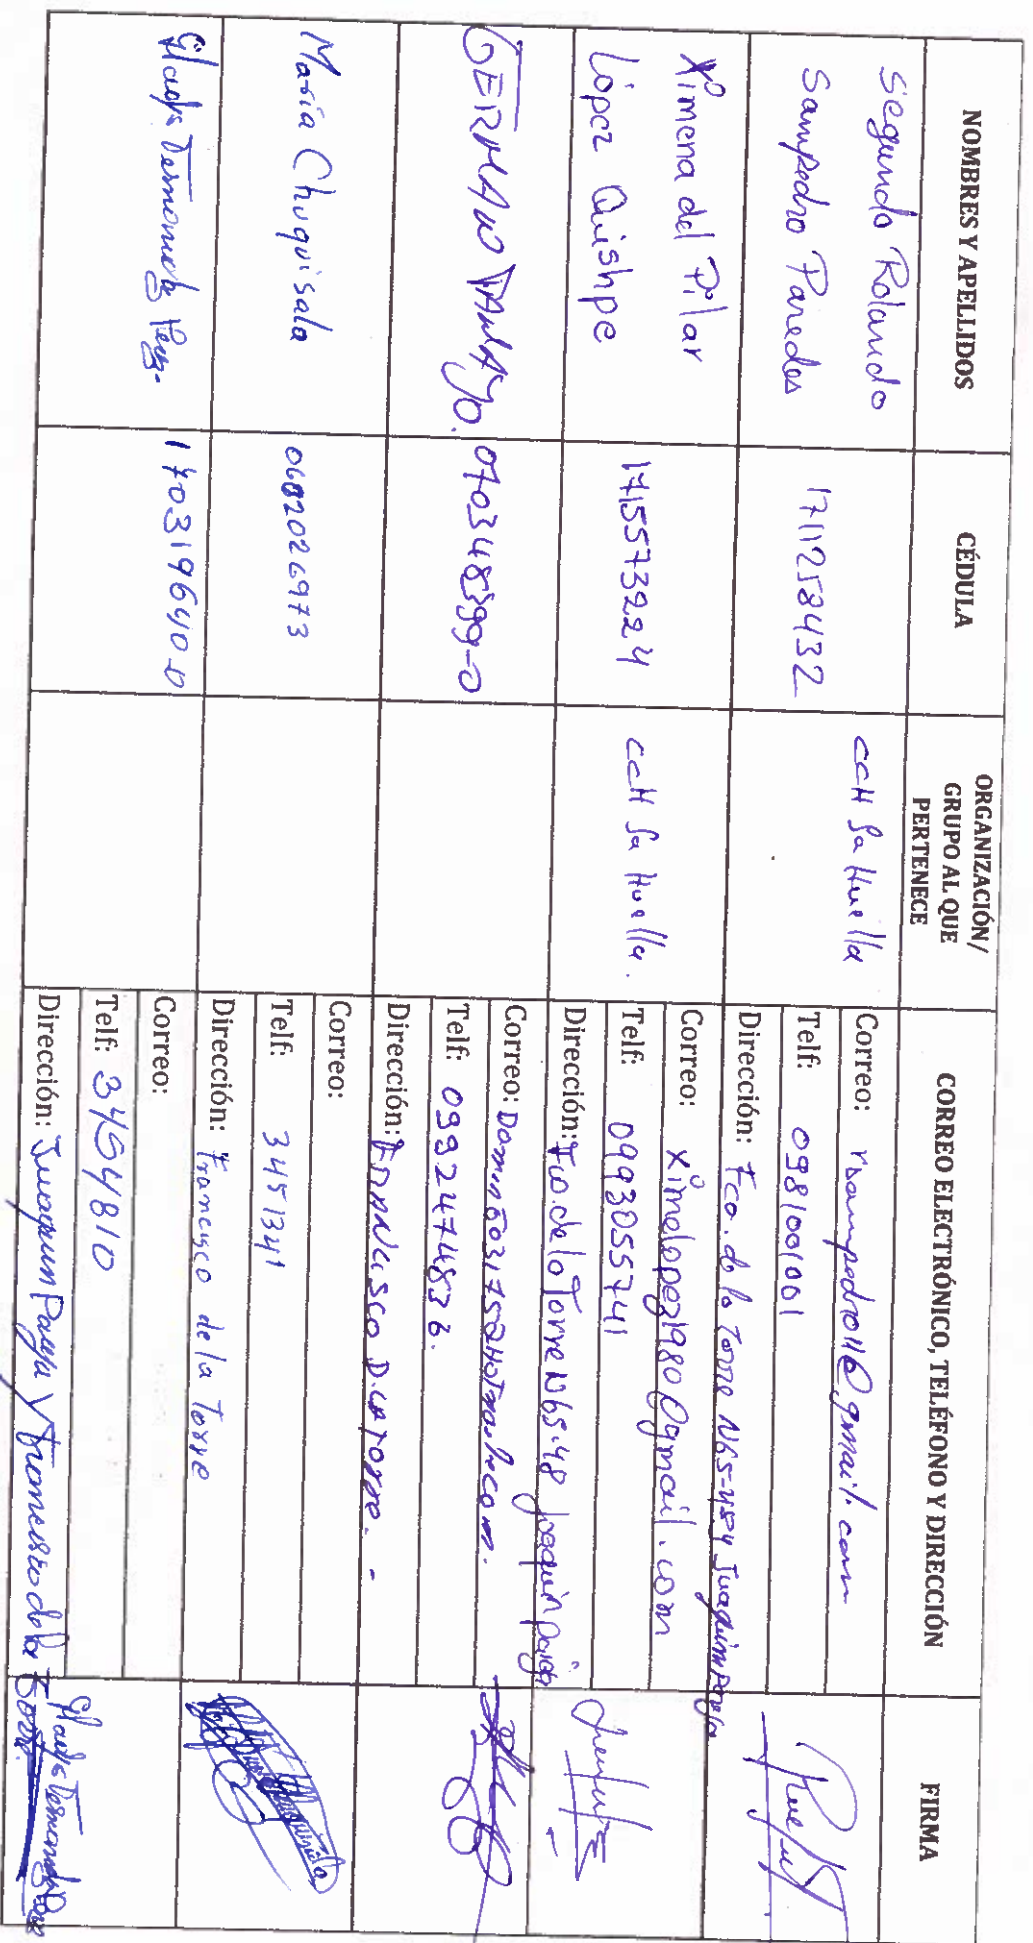 NOMBRES Y APELLIDOS
CÉDULA
ORGANIZACIÓN/
GRUPO AL QUE
PERTENECE
CORREO ELECTRÓNICO, TELÉFONO Y DIRECCIÓN
FIRMA
Segundo Rolando
Sampedro Paredes
1711258432
CCH La Huella
Correo: rsampedro11@gmail.com
Telf: 0981001001
Dirección: Fco. de la Torre N65-484 Juaquim Pareja
Ximena del Pilar
López Quishpe
1715573224
CCH La Huella.
Correo: ximelopez1980@gmail.com
Telf: 0993055741
Dirección: Fco de la Torre N65-48 Joaquin pareja
GERMAN TAMAYO.
070348399-0
Correo:
Telf: 0992474836.
Dirección: FRANCISCO D. LA TORRE. -
María Chuquisala
0602026973
Correo:
Telf: 3451341
Dirección: Francisco de la Torre
170319640-0
Correo:
Telf: 3454810
Dirección: Juaquin Pareja y Francisco de la Torre.